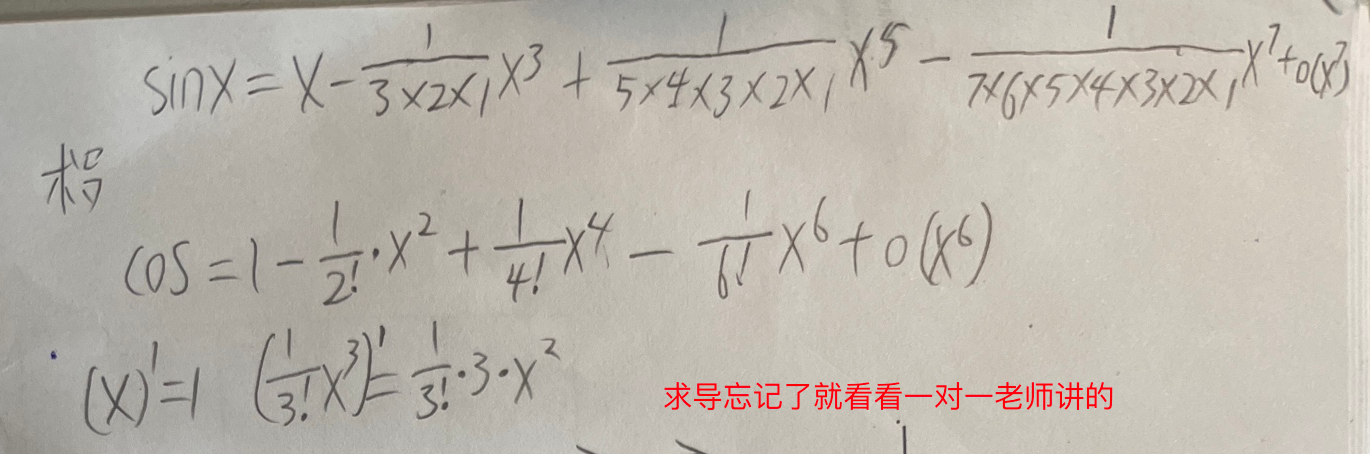 sinx = x - \frac{1}{3×2×1}x^3 + \frac{1}{5×4×3×2×1}x^5 - \frac{1}{7×6×5×4×3×2×1}x^7 + o(x^7)
求导
cos = 1 - \frac{1}{2!}·x^2 + \frac{1}{4!}x^4 - \frac{1}{6!}x^6 + o(x^6)
(x)' = 1 (\frac{1}{3!}x^3)' = \frac{1}{3!}·3·x^2
求导忘记了就看看一对一老师讲的